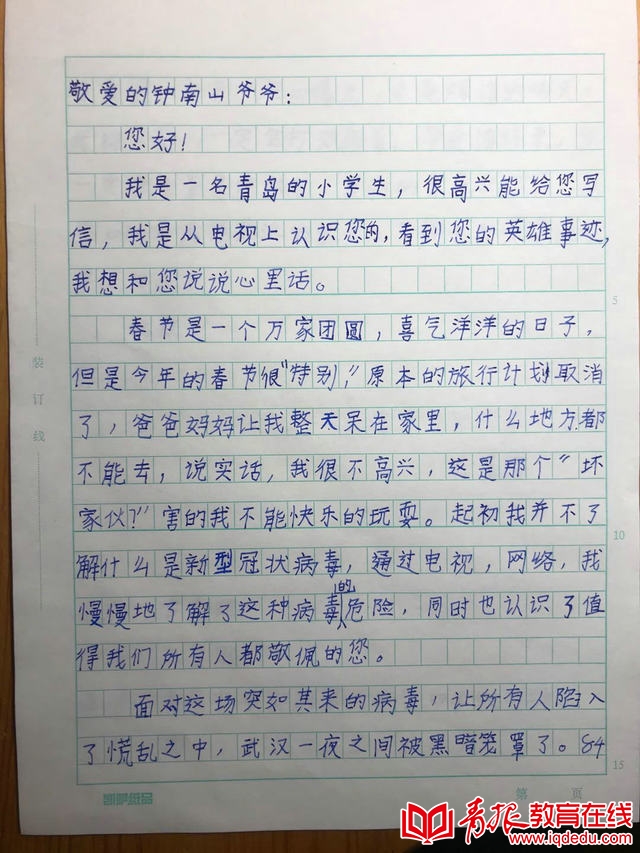 敬爱的钟南山爷爷：
您好！
我是一名青岛的小学生，很高兴能给您写
信，我是从电视上认识您的，看到您的英雄事迹，
我想和您说说心里话。
5
春节是一个万家团圆，喜气洋洋的日子，
但是今年的春节很“特别，”原本的旅行计划取消
了，爸爸妈妈让我整天呆在家里，什么地方都
不能去，说实话，我很不高兴，这是那个“坏
家伙？”害的我不能快乐的玩耍。起初我并不了
10
解什么是新型冠状病毒，通过电视，网络，我
慢慢地了解了这种病毒的危险，同时也认识了值
得我们所有人都敬佩的您。
面对这场突如其来的病毒，让所有人陷入
了慌乱之中，武汉一夜之间被黑暗笼罩了。84
15
装订线
第 页
青报教育在线
www.iqdedu.com